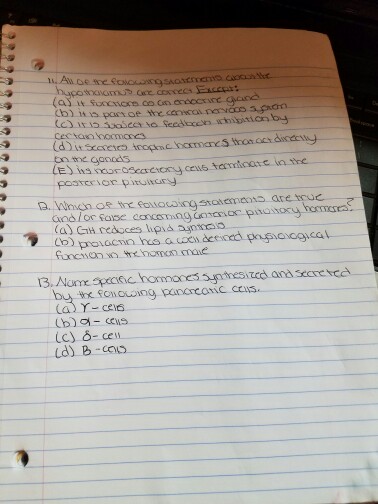 11. All of the following statements about the
hypothalamus are correct Except:
(a) it functions as an endocrine gland
(b) it is part of the central nervous system
(c) it is subject to feedback inhibition by
certain hormones
(d) it secretes trophic hormones that act directly
on the gonads
(E) its neurosecretory cells terminate in the
posterior pituitary
12. Which of the following statements are true
and/or false concerning anterior pituitary hormones?
(a) GH reduces lipid synthesis
(b) prolactin has a well defined physiological
function in the human male
13. Name specific hormones synthesized and secreted
by the following pancreatic cells.
(a) γ- cells
(b) α- cells
(c) δ- cell
(d) B - cells